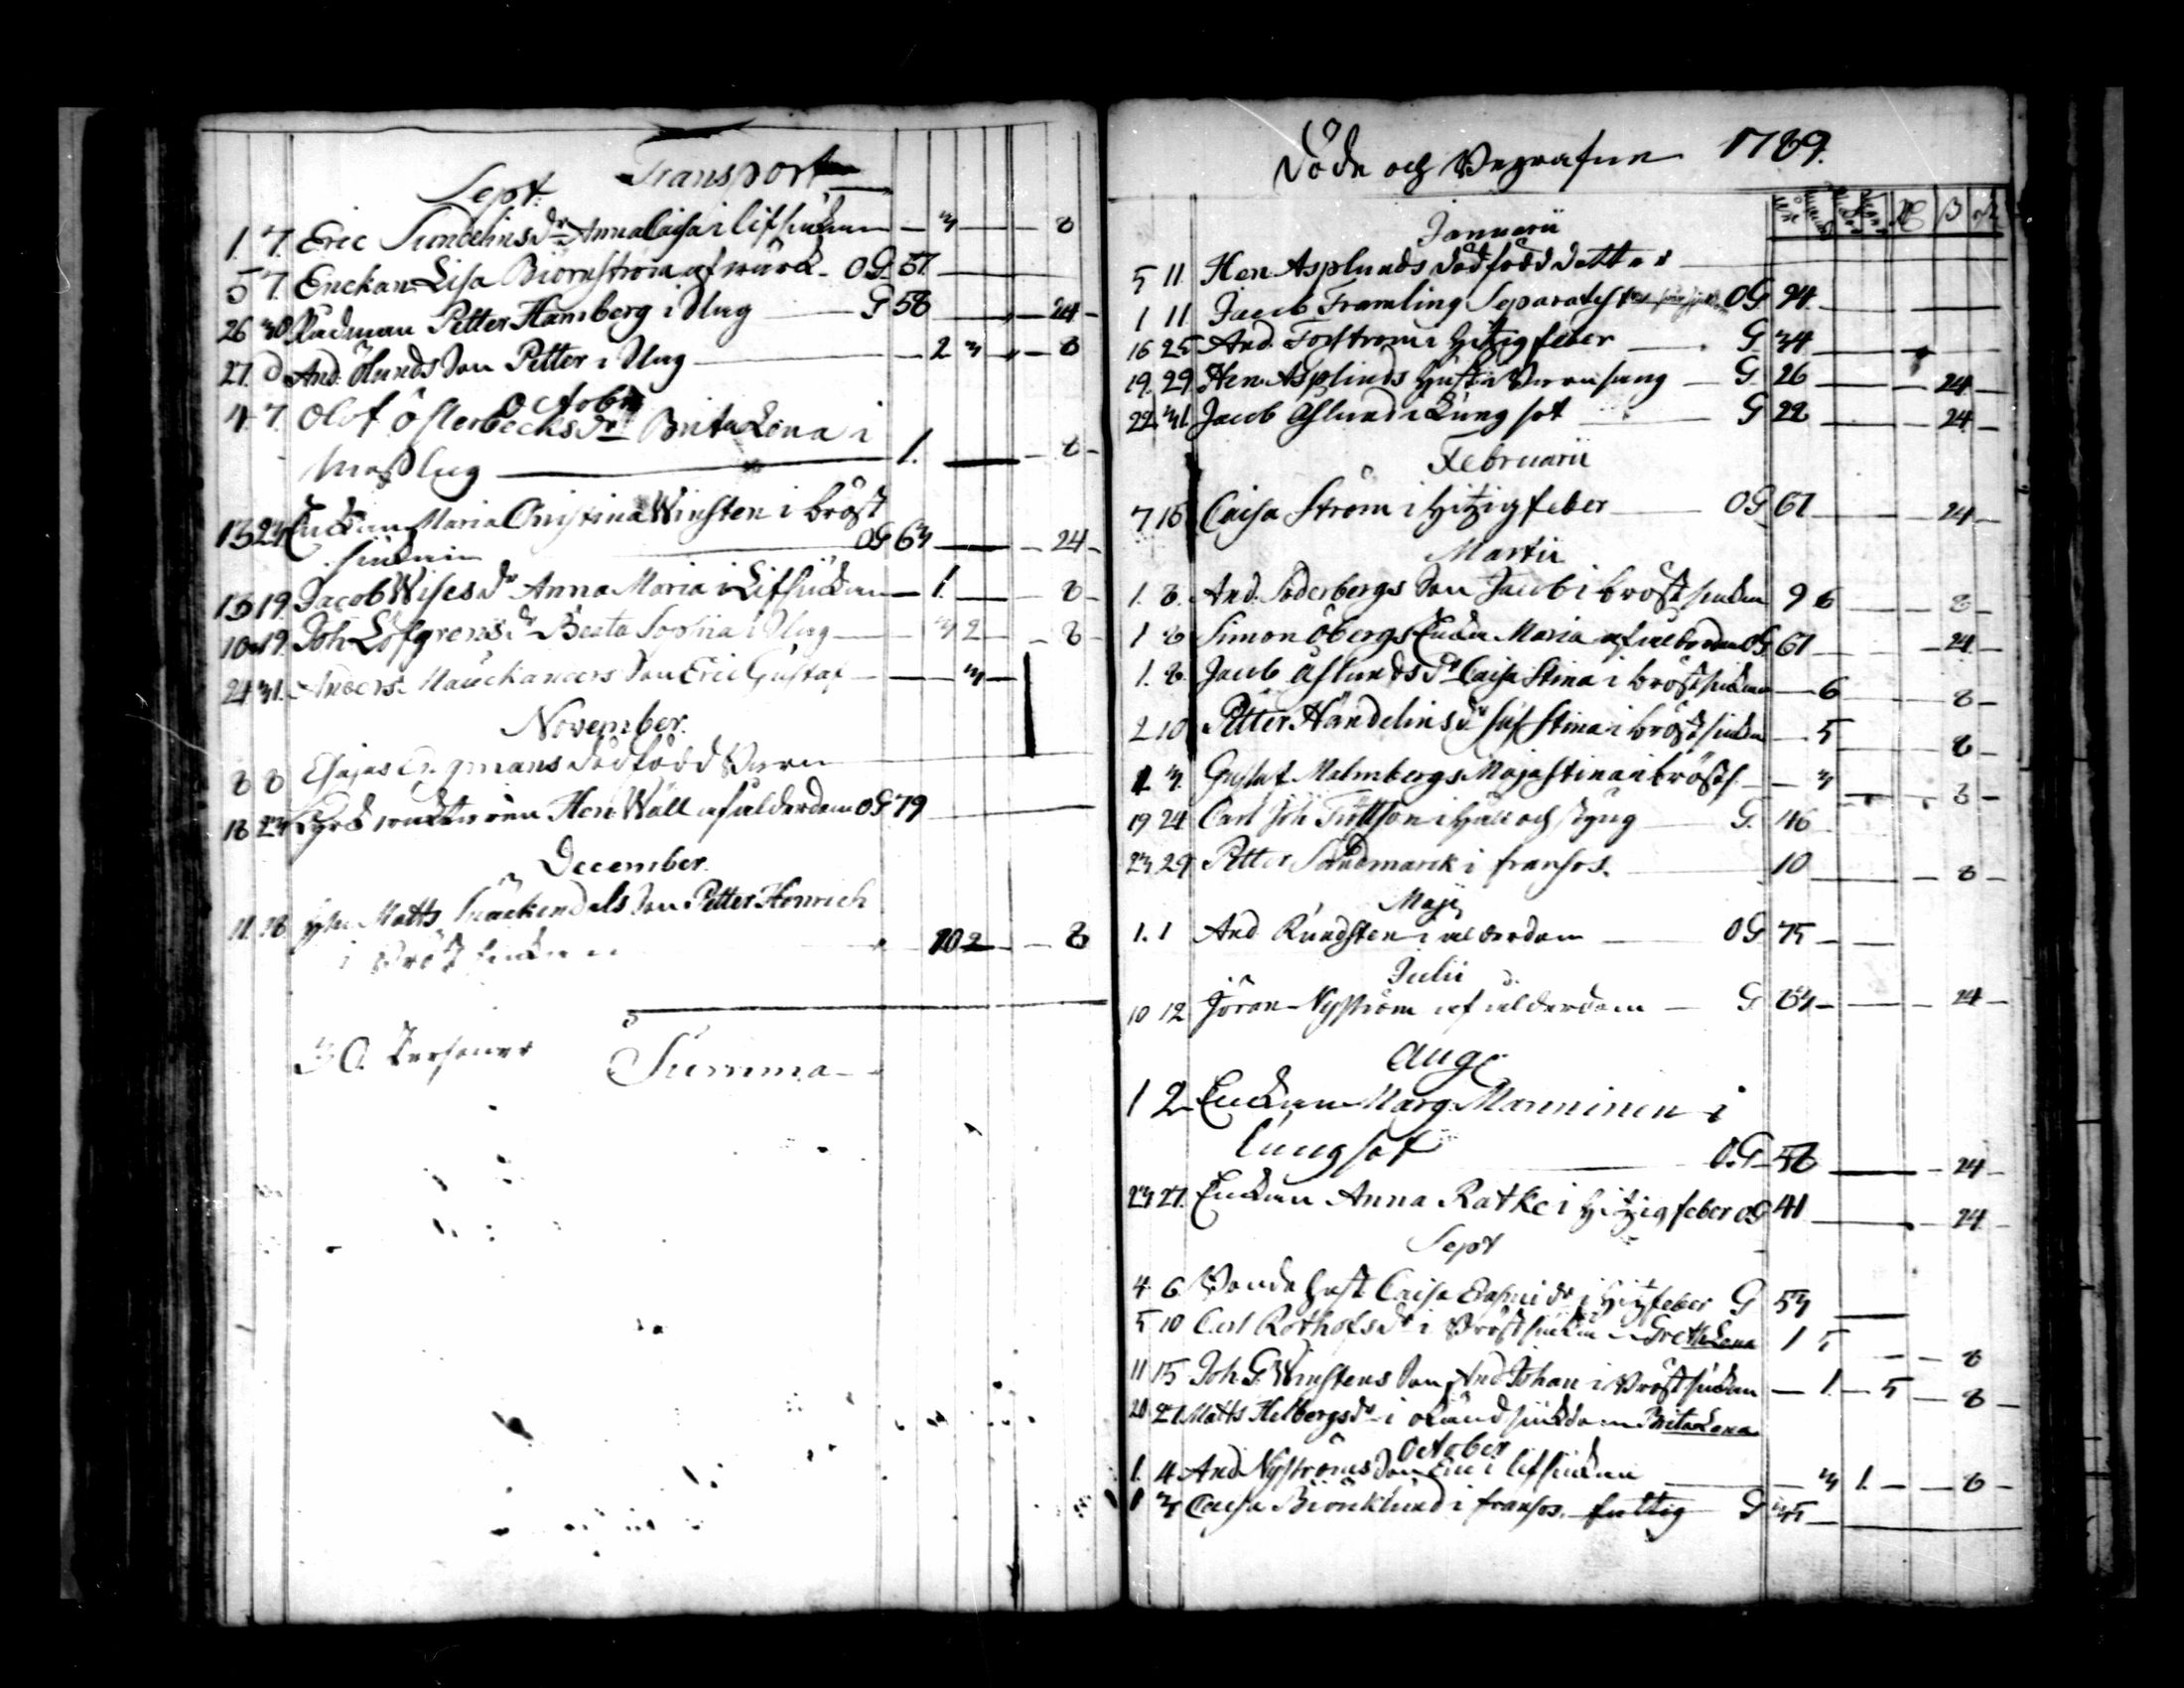 Transport
Sept.
1 7. Eric Sundelins dr Anna Caisa i lifsiukan — 3 — 8
5 7. Enckan Lisa Biörnström af wärck. OG. 57.
26 30 Rådman Petter Hamberg i Slag G 58 — 24 -
27. D And. Ölunds Son Petter i Slag — 2 3 — 8
October
4 7 Olof Österbecks dr Brita Lena i
Mässlag — 1. — 8 -
13 23 Enckan Maria Christina Winsten i bröst
siukan OG 63 — 24 -
13 19. Jacob Wises dr Anna Maria i Lifsiukan — 1. — 8 -
10 19. Joh Löfgrens dr Beata Sophia i Slag — 3 2 — 8
24 31. Anders Son Eric Gustaf — 3 —
November.
8 8 Esajas Engmans dödfödd Barn
18 23 Hen Wäll af ålderdom OG 79
December.
11. 18. Matts Son Petter Henrich
i Bröst siukan 10 2 — 8
30. Personer Summa -
Döde och Begrafne 1789.
Januarii
5 11 Hen Asplunds dödfödd dotter
1 11 Jacob Framling Separatist OG 94.
16 25 And Forström i hitzig feber G. 34
19. 29 Hen. Asplinds hustru Barnsäng G. 26 — 24 -
22. 31. Jacob Åslund i Lungsot G 22 — 24 -
Februarii
7 15 Caisa Ström i hitzig feber OG 67 — 24 -
Martii
1. 8. And. Söderbergs Son Jacob i bröstsiukan 9 6 — 8 -
1 8 Simon Öbergs Enka Maria af ålderdom OG 67 — 24 -
1. 8. Jacob Åslunds dr Caisa Stina i bröstsiukan — 6 — 8 -
2 10 Petter Händelins dr Stina i bröstsiukan — 5 — 8 -
1 3. Gustaf Malmbergs Maja Stina i brösts. — 3 — 8 -
19 24 Carl Joh Tröllson i håll och styng G. 46
23 29 Petter Sandmarck i fransos. 10 — 8 -
Maji
1. 1 And Rundsten i ålderdom OG 75 -
Julii
10 12 Jöran Nyström af ålderdom G 83 — 24 -
Aug.
1 2 Enckan Marg. Manninen i
lungsot O.G 58 — 24 -
23 27. Enckan Anna Ratke i hitzig feber OG 41 — 24 -
Sept
4 6 Caisa dr i hitzfeber G 53
5 10 Carl Rothofs dr i Bröstsiukan Greta Lena 1 5 — 8
11 15 Joh. G. Winstens Son And Johan i Bröstsiukan — 1. — 5 — 8 -
20 27 Matts Helbergs dr i okänd siukdom Brita Lena
October
1. 4 And Nyströms Son Eric i lifsiukan 3 1. — 8 -
1 3 Caisa Biörcklund i fransos. fattig G 35